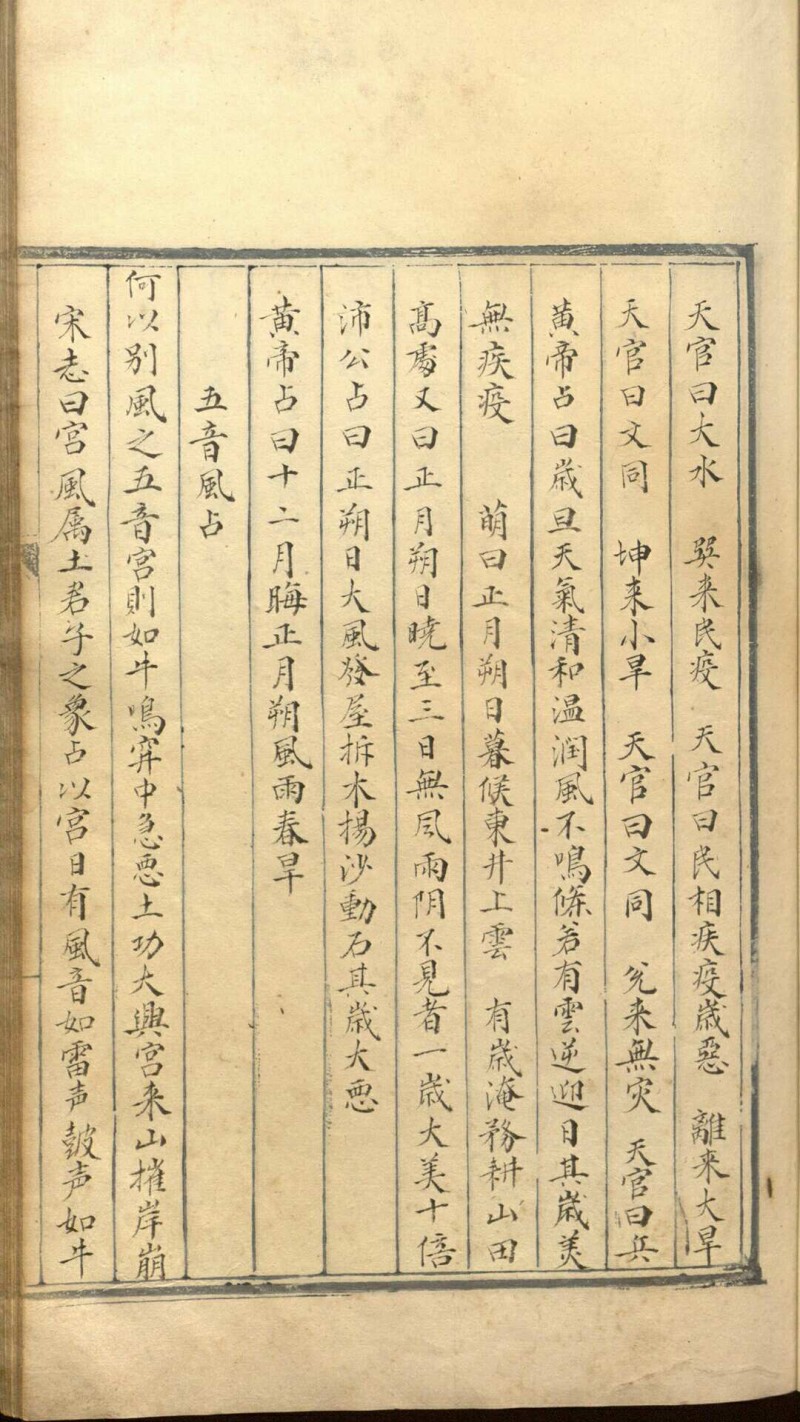 天官曰大水　巽来民疫　天官曰民相疾疫歳惡　離来大旱
天官曰文同　坤来小旱　天官曰文同　兊来無灾　天官曰兵
黄帝占曰歳旦天氣清和温润風不鳴條若有雲逆迎日其歳美
無疾疫　　萌曰正月朔日暮候東井上雲　有歳淹務耕山田
髙䖏又曰正月朔日曉至三日無风雨阴不見者一歳大美十倍
沛公占曰正朔日大風發屋拆木揚沙動石其歳大恶
黄帝占曰十二月晦正月朔風雨春旱
五音風占
何以别風之五音宫則如牛鳴穽中急恶土功大興宫来山摧岸崩
宋志曰宫風属土君子之象占以宫日有風音如雷声皷声如牛